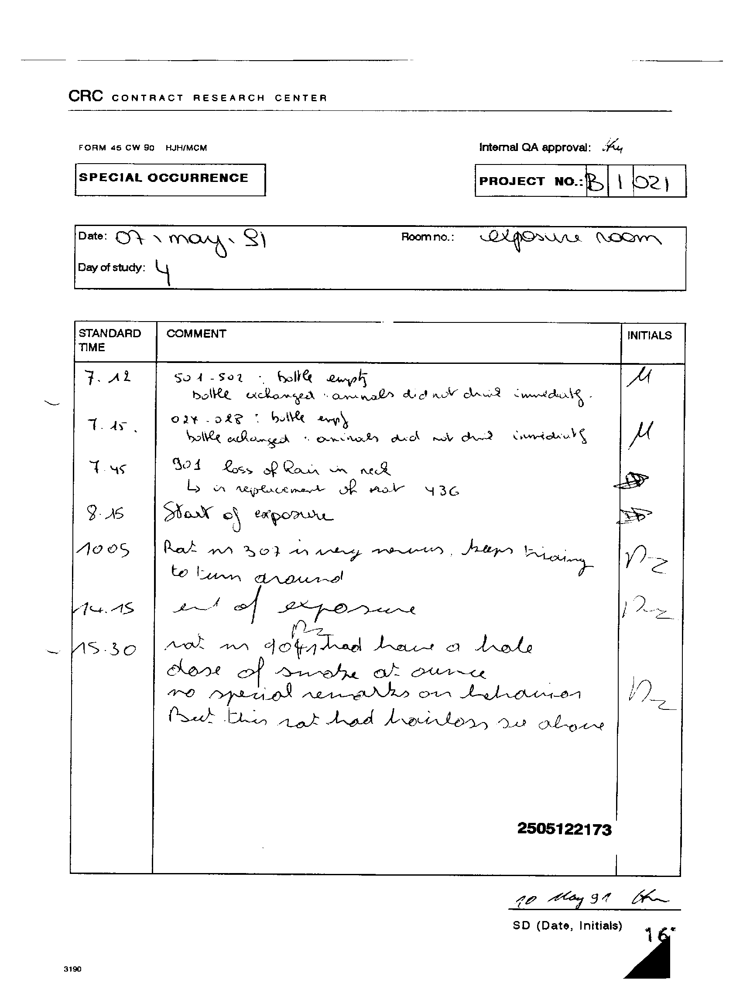 CRC CONTRACT RESEARCH CENTER
FORM 45 CW 90 HJH/MCM
Internal QA approval:
SPECIAL OCCURRENCE
PROJECT NO.: B 1 021
Date: 07. may. 91
Room no.: exposure room
Day of study: 4
STANDARD TIME
COMMENT
INITIALS
7.12 501-502 : bottle empty
bottle exchanged : animals did not drink immediately.
7.15. 027-028 : bottle empty
bottle exchanged : animals did not drink immediately
7.45 901 loss of hair in neck
↳ is replacement of rat 436
8.15 Start of exposure
1005 Rat nr 307 is very nervous, keeps trieing
to turn around
14.15 end of exposure
15.30 rat nr had have a hole
dose of smoke at ounce
no special remarks on behavior
But this rat had hairloss see above
2505122173
10 May 91
SD (Date, Initials)
16
3190